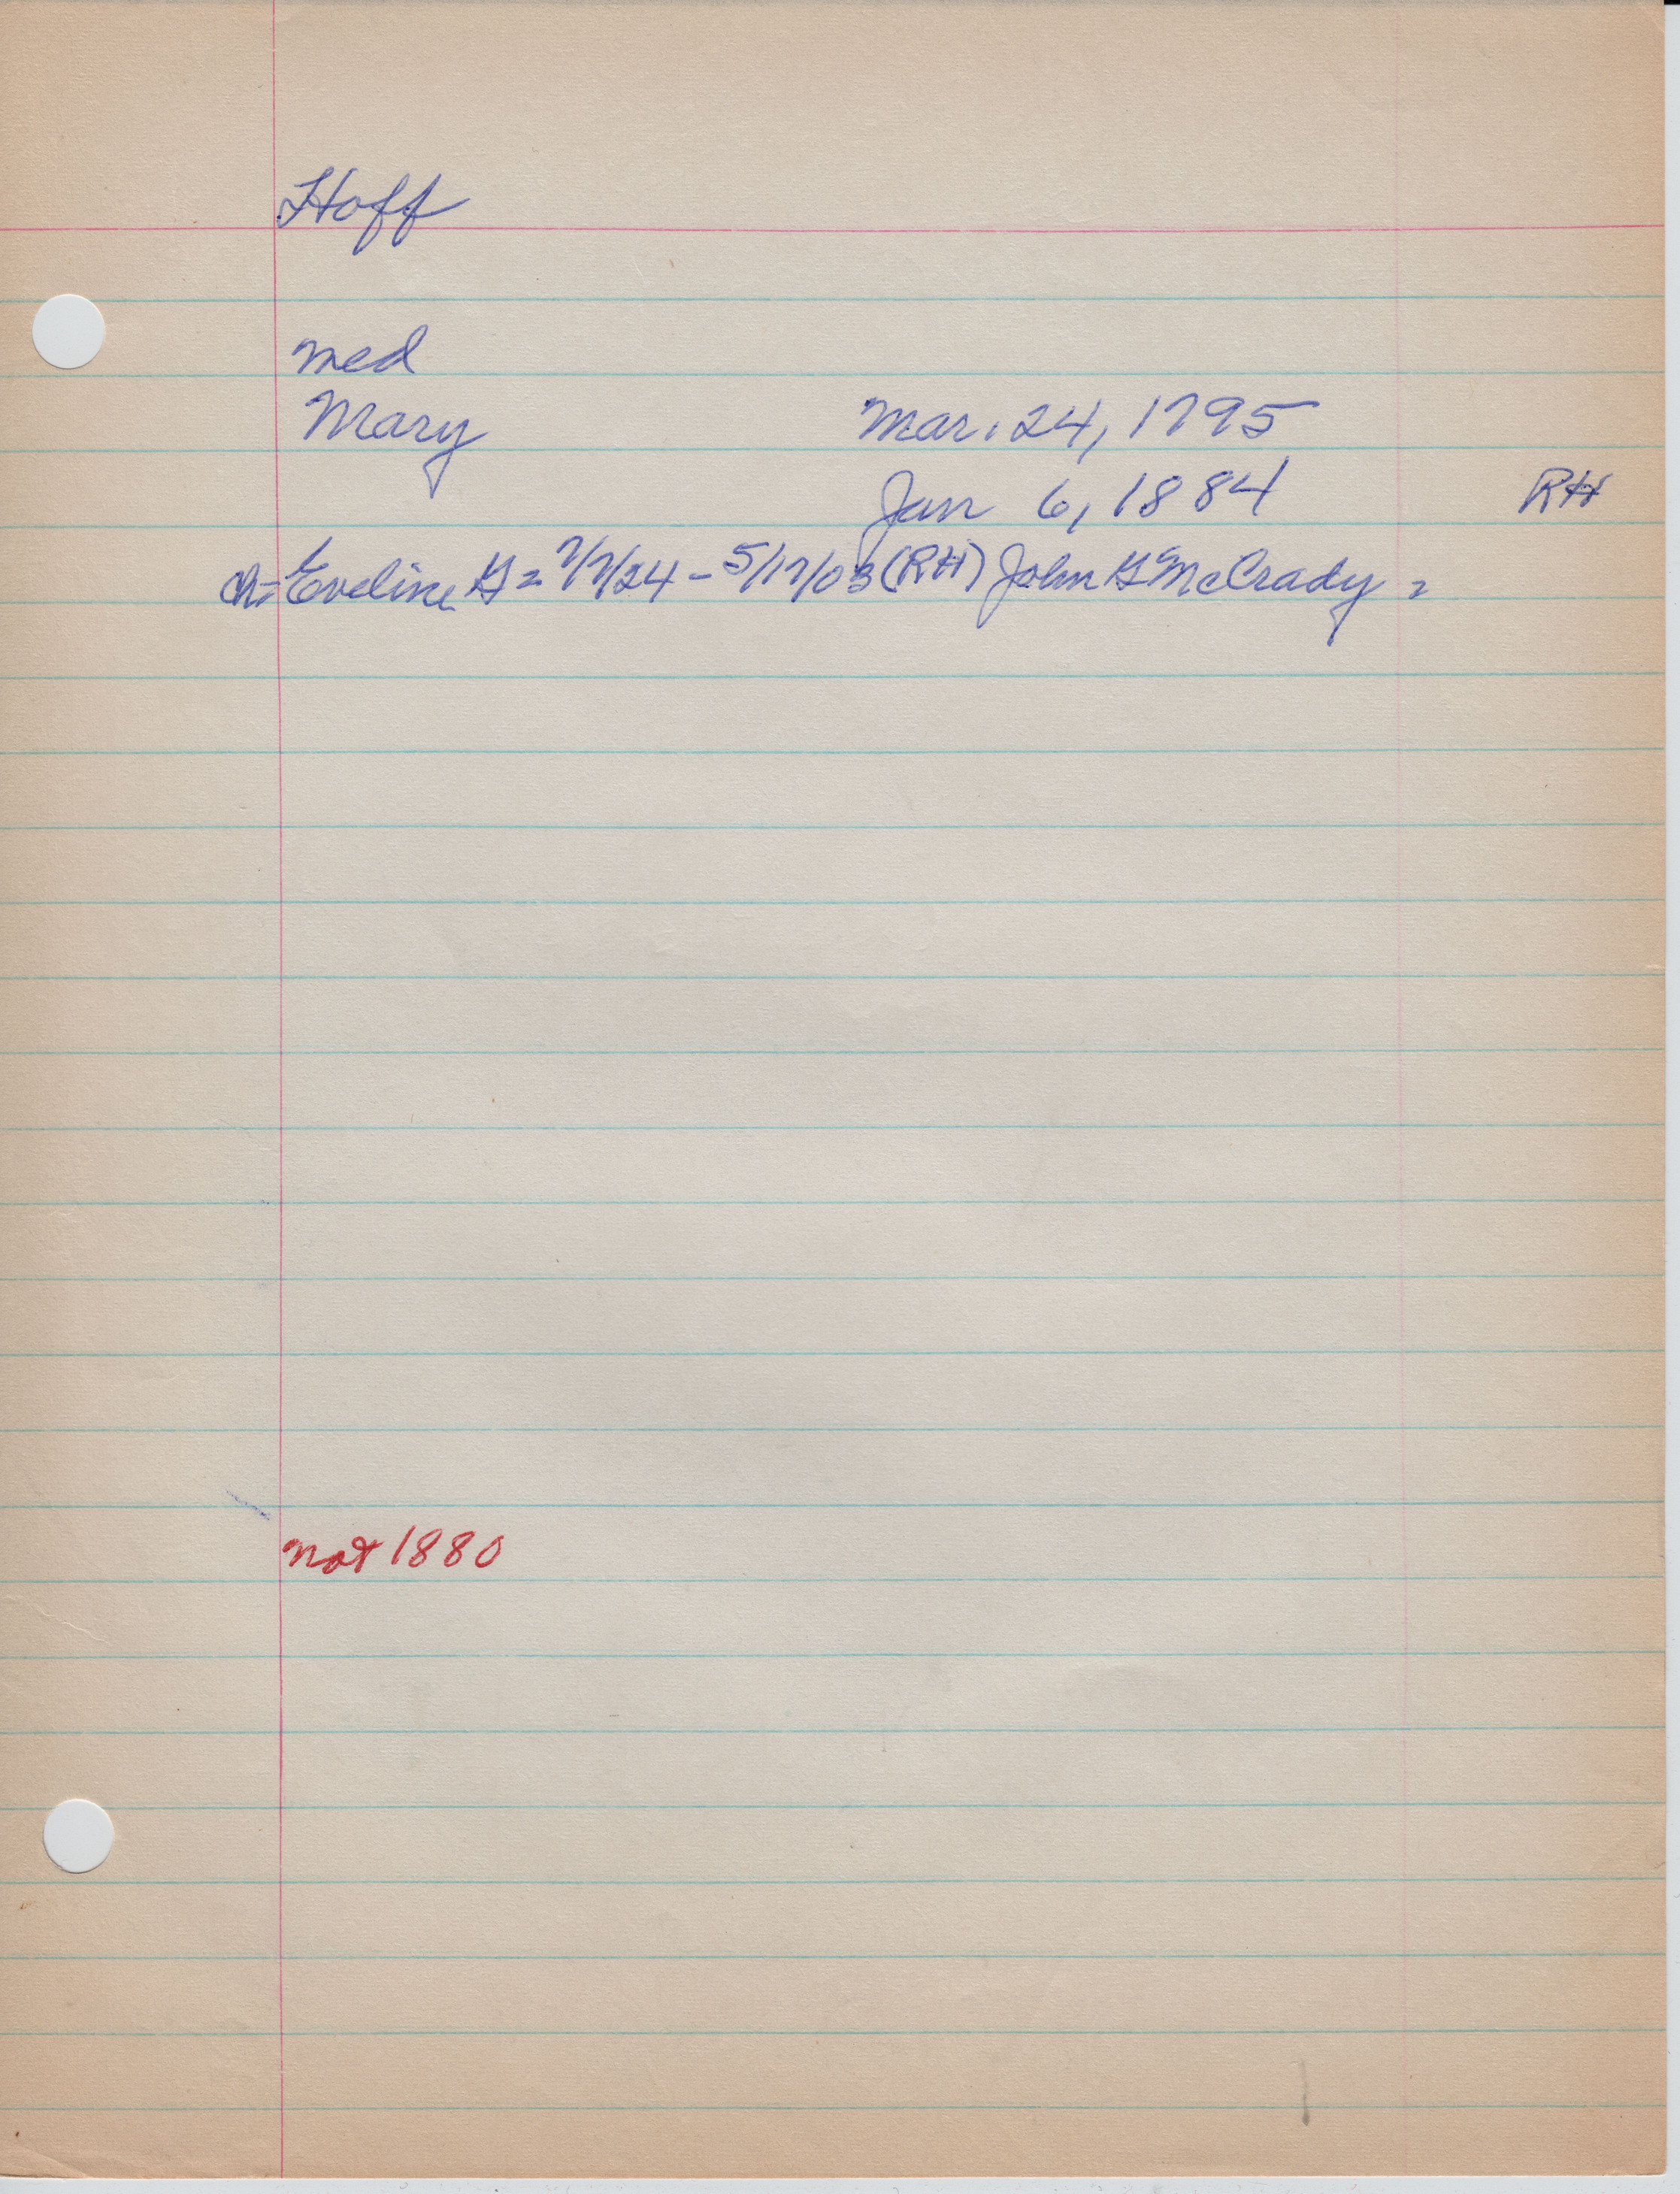 Hoff
med
Mary Mar. 24, 1795
Jan 6, 1884 RH
ch= Eveline G = 7/7/24 - 5/17/03 (RH) John G McCrady =
not 1880